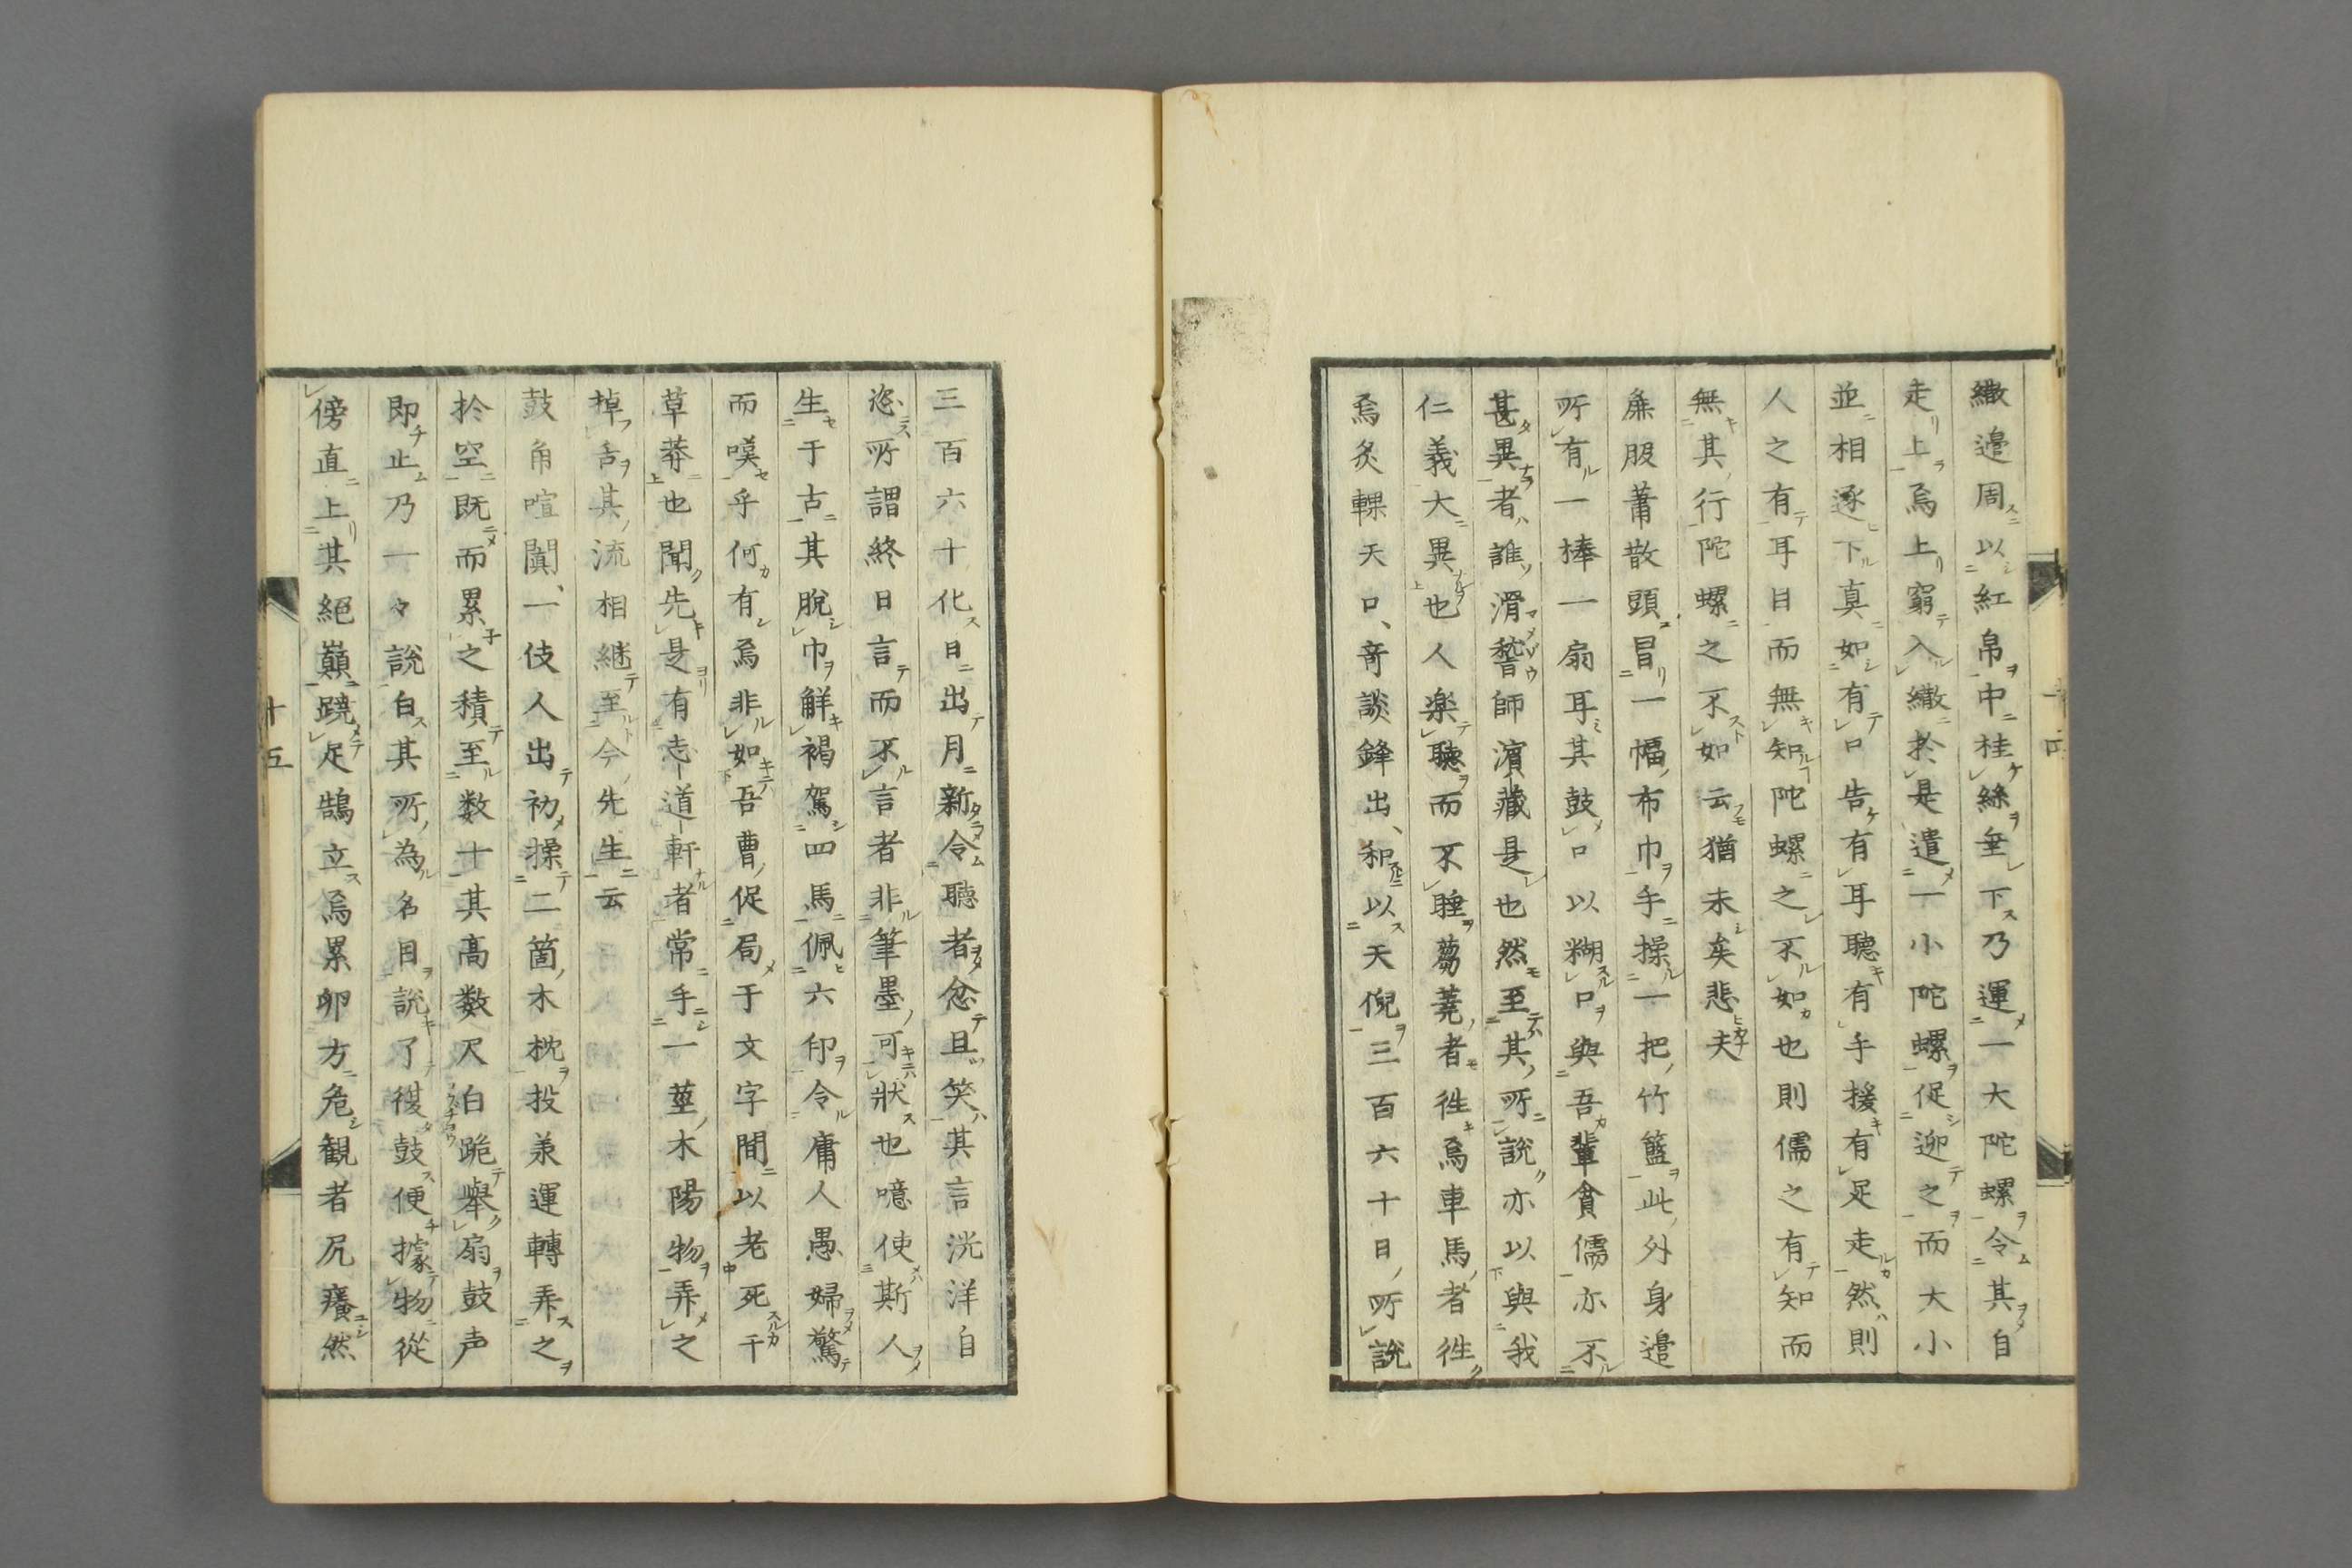 繖邉周以紅帛中桂絲垂下乃運一大陀螺令其自
走上焉上窮入繖於是遣一小陀螺促迎之而大小
並相逐下真如有口告有耳聽有手援有足走然則
人之有耳目而無知陀螺之不如也則儒之有知而
無其行陀螺之不如云猶未矣悲夫
廉服蕭散頭冒一幅布巾手操一把竹籃此外身邉
所有一棒一扇耳其鼓口以糊口與吾輩貧儒亦不
甚異者誰滑稽師濱藏是也然至其所說亦以與我
仁義大異也人楽聽而不睡蒭蕘者徃焉車馬者徃
焉炙輠天口奇談鋒出和以天倪三百六十日所說
三百六十化日出月新令聽者忿且笑其言洸洋自
恣所謂終日言而不言者非筆墨可狀也噫使斯人
生于古其脫巾觧褐駕四馬佩六印令庸人愚婦驚
而嘆乎何有焉非如吾曹促局于文字間以老死干
草莽也聞先是有志道軒者常手一莖木陽物弄之
掉舌其流相継至今先生云
鼓角喧闐一伎人出初操二箇木枕投羕運轉弄之
於空既而累之積至数十其高数尺白跪舉扇鼓声
即止乃一々說白其所為名目說了復鼓便據物從
傍直上其絕巔蹺足鵠立焉累卵方危観者尻癢然
十五